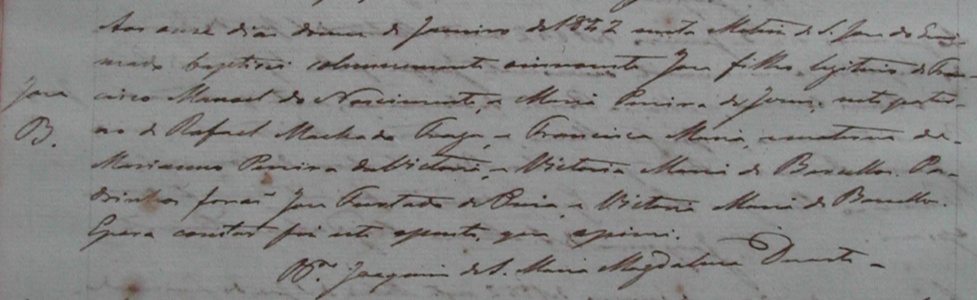 Aos onze dias do mez de Janeiro de 1852 nesta Matriz de S. Joze do
baptizei solemnemente ao innocente Joze filho legitimo de Fran-
Joze
cisco Manoel do Nascimento, e Maria Pereira de Jezus, neto pater-
B.
no de Rafael Machado Fraga, e Francisca Maria, e materno de
Marianno Pereira da Victoria, e Victoria Maria de Barcellos. Pa-
drinhos forão Joze Furtado de e Victoria Maria de Barcellos.
E para constar fiz este assento, que assinei.
Joaquim de S. Maria Magdalena Duarte